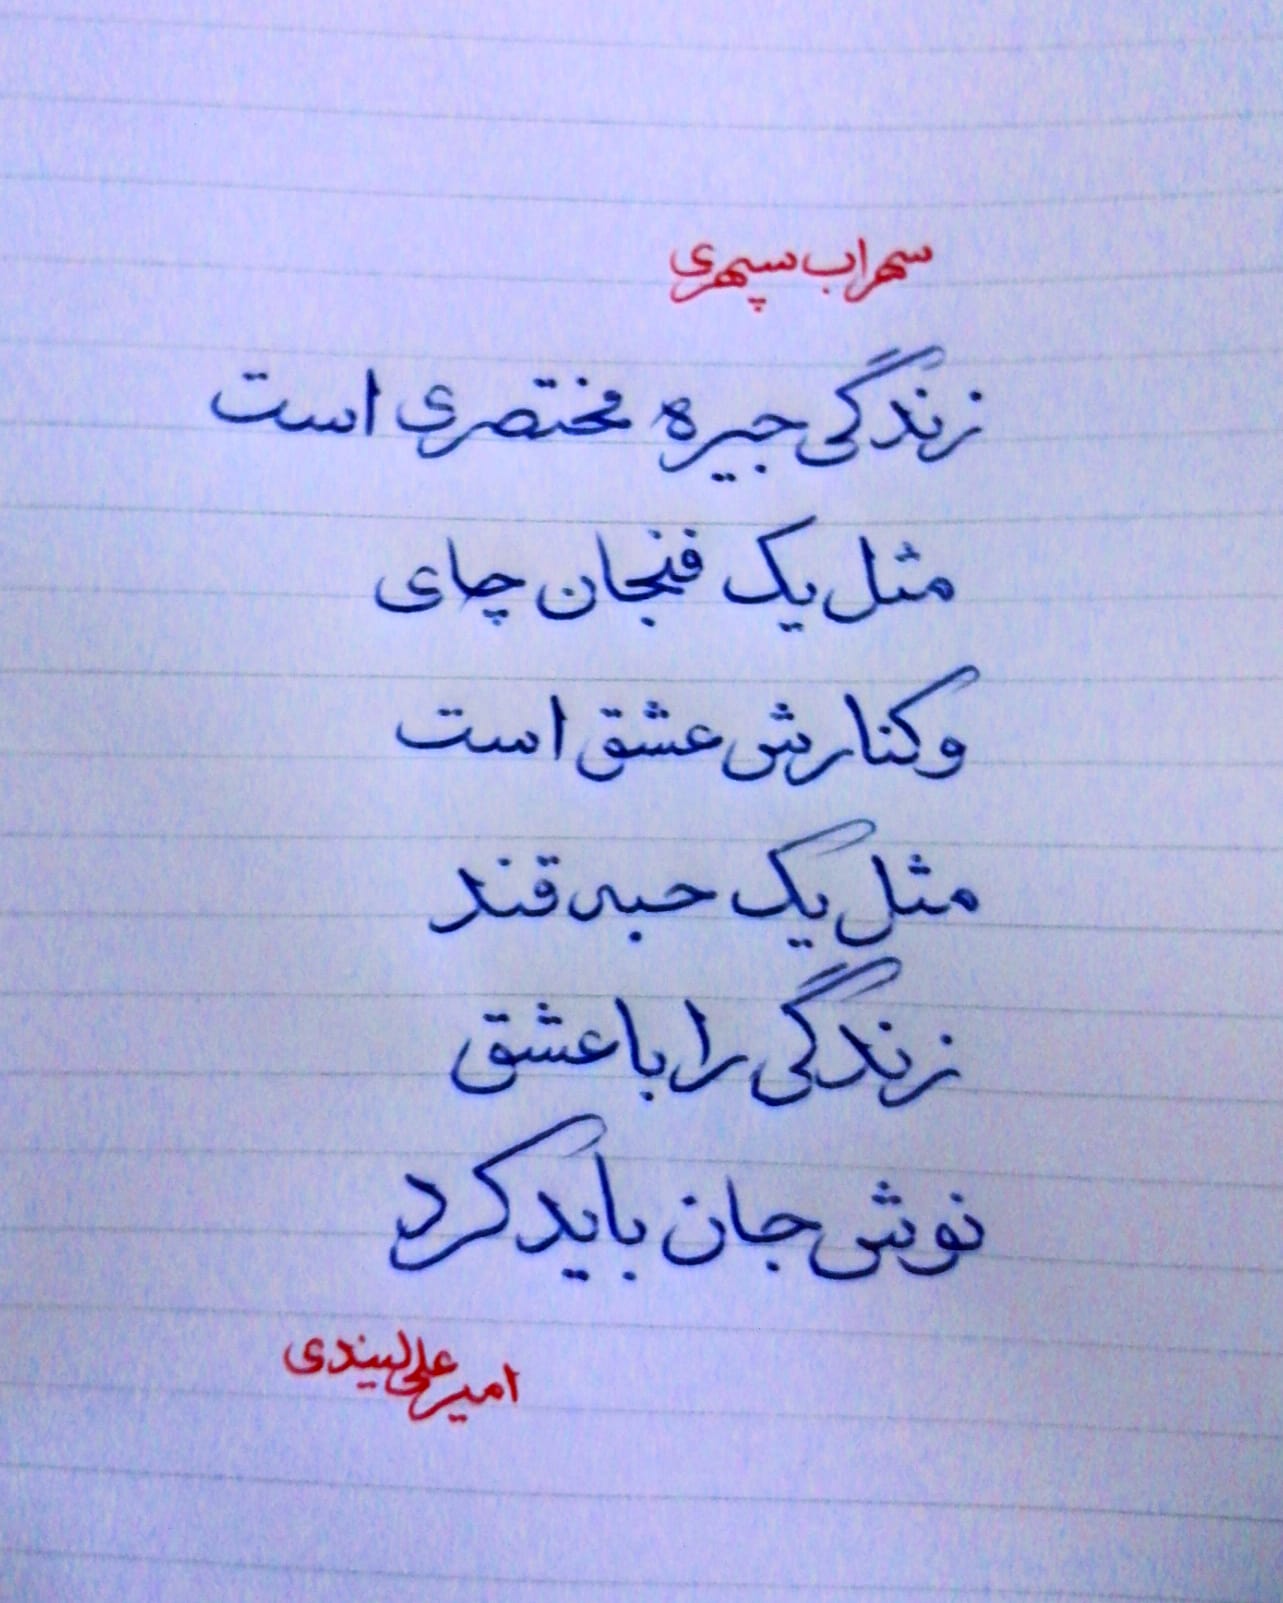 سهراب سپهری
زندگی جیره مختصری است
مثل یک فنجان چای
و کنارش عشق است
مثل یک حبه قند
زندگی را با عشق
نوش جان باید کرد
امیرعلی